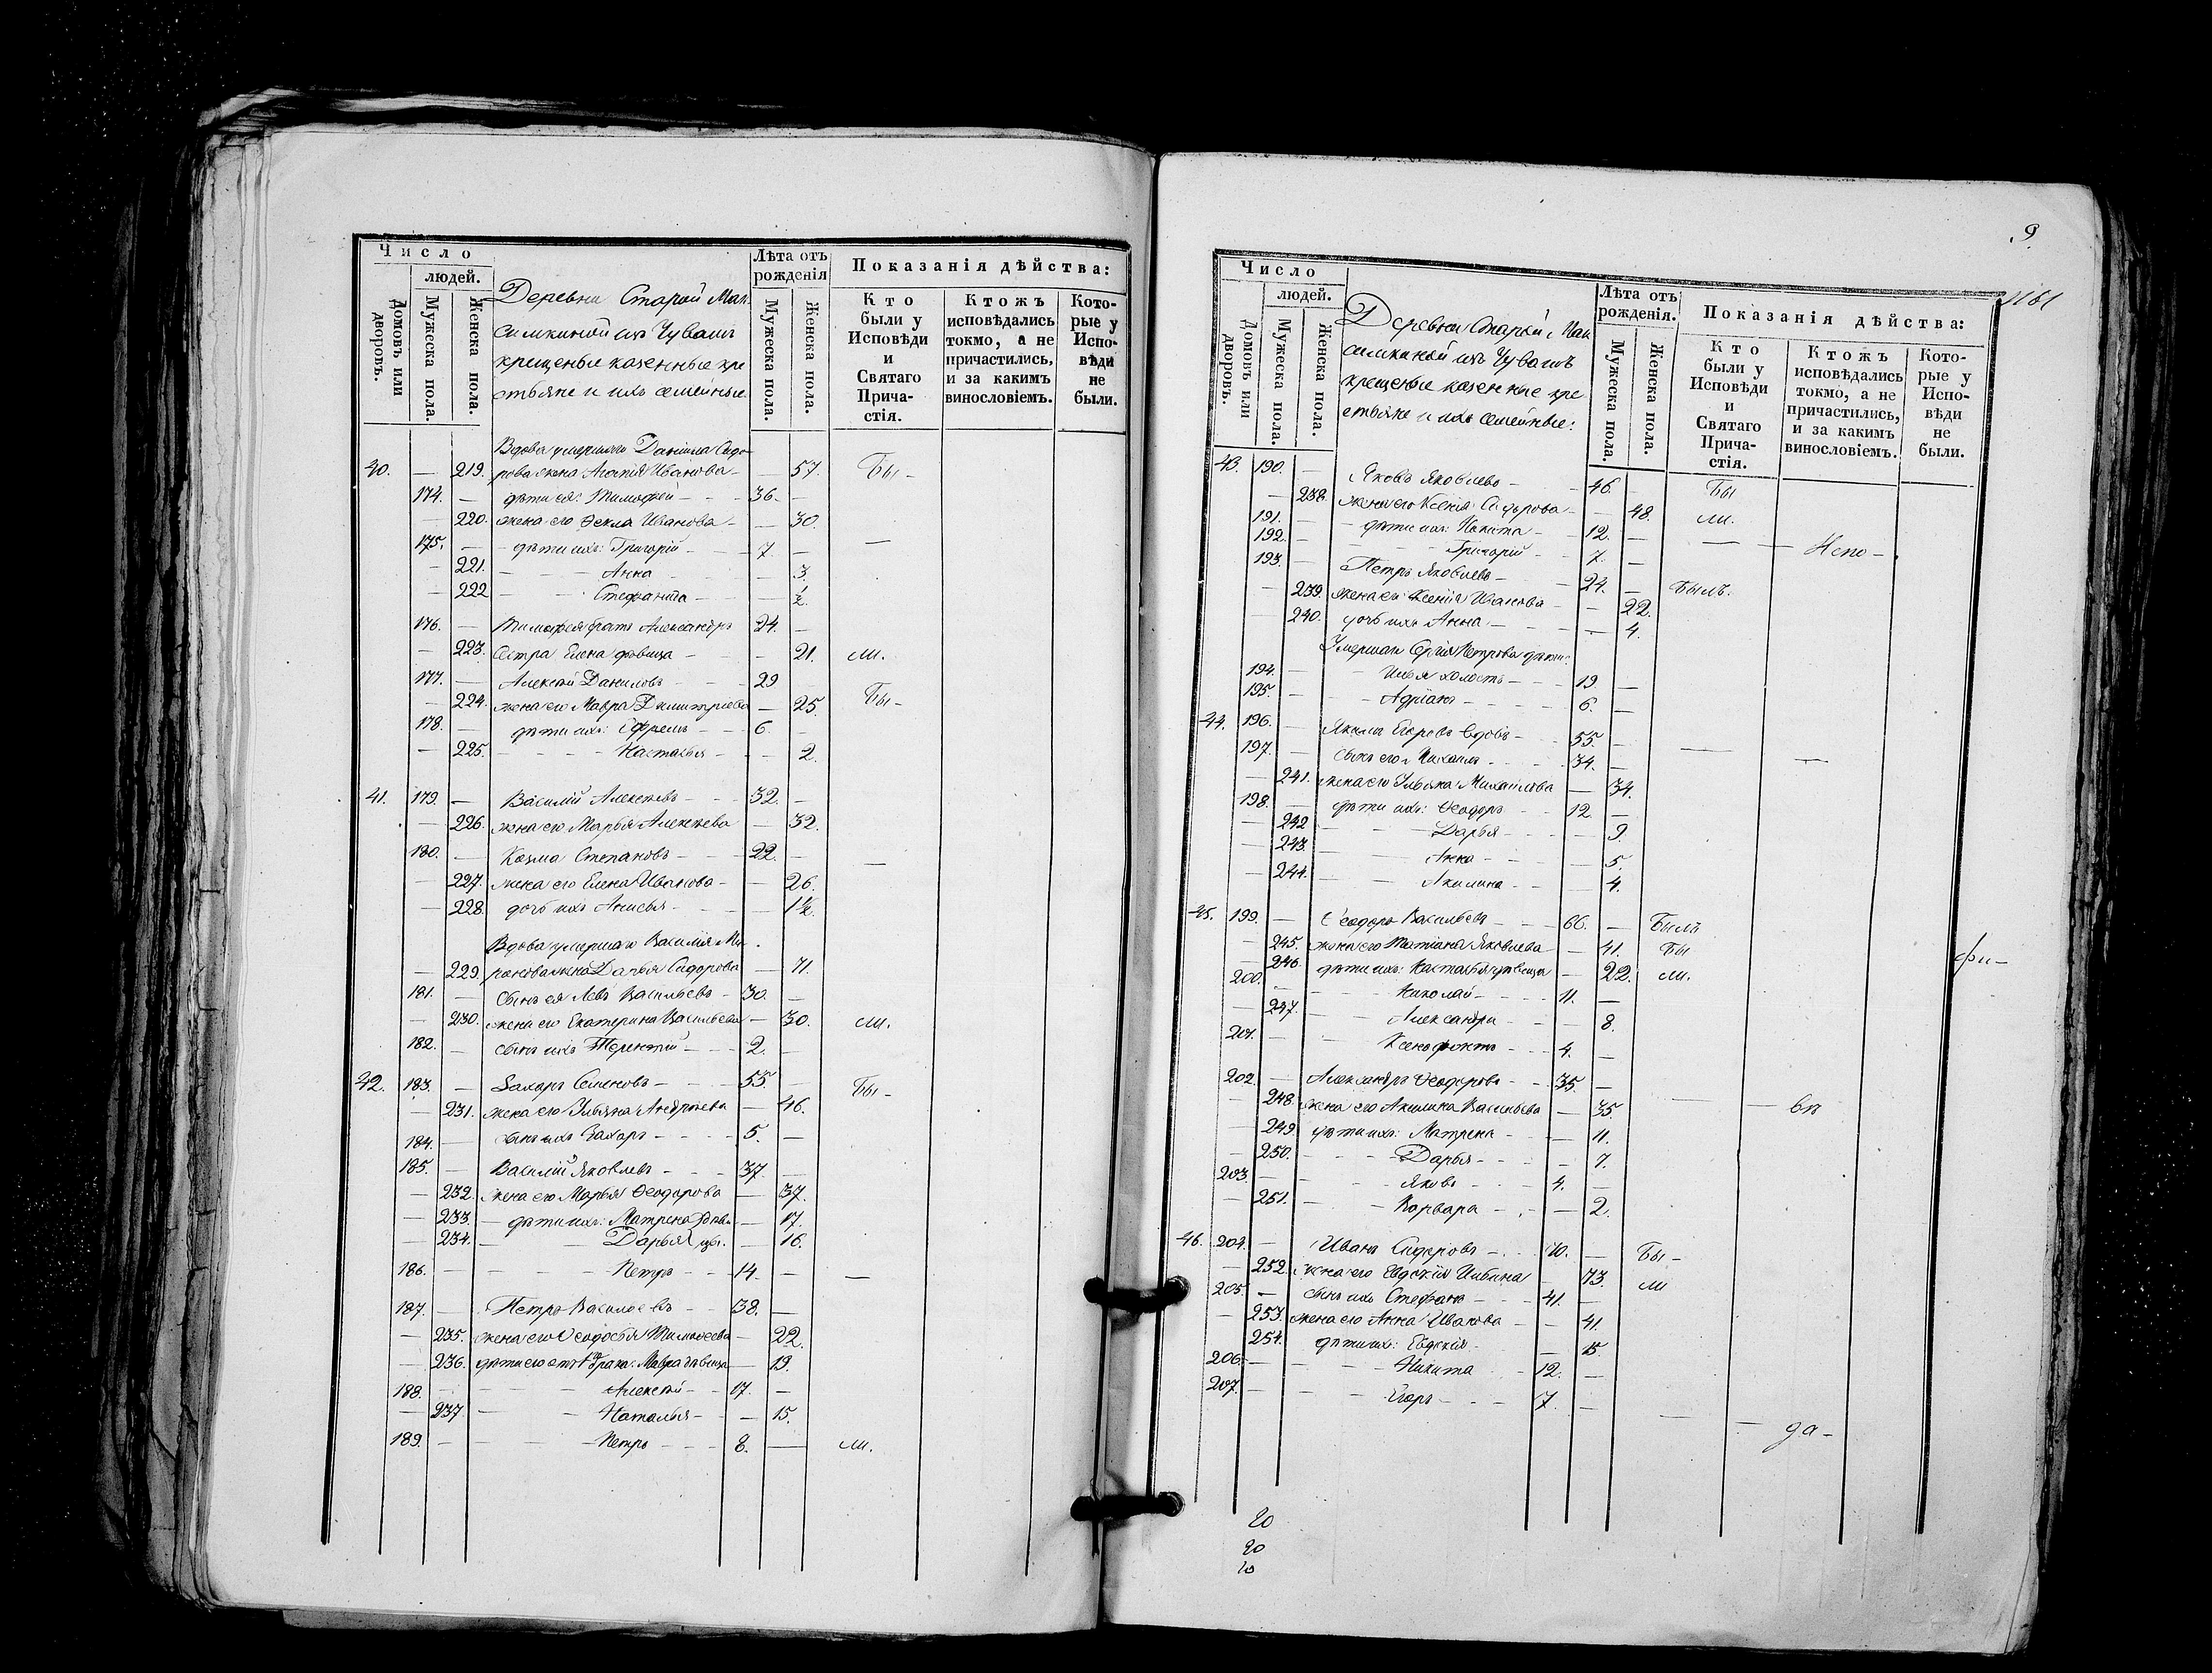 Число
людей.
Домовъ или дворовъ.
Мужеска пола.
Женска пола.
Деревни Старой Мак-
симкиной изъ Чувашъ
крещеные казенные кре
стьяне и ихъ семейные.
Лѣта отъ рожденія
Мужеска пола.
Женска пола.
Показанія дѣйства:
Кто были у Исповѣди и Святаго Прича-стія.
Ктожъ исповѣдались токмо, а не причастились, и за какимъ винословіемъ.
Кото-рые у Испо-вѣди не были.
Вдова умершаго Данiила Сидо-
40. — 219. рова жена Агапiя Иванова — — 57. Бы-
174. — дѣти ея: Тимофей — 36. —
— 220. жена его Фекла Иванова — — 30.
175. — дѣти ихъ: Григорій — 7. — —
— 221. — Анна — 3.
— 222 — Стефанида — ½.
176. — Тимофея братъ Александръ 24. —
— 223. Сестра Елена дѣвица — 21. ли.
177. — Алексѣй Даниловъ — 29
— 224. жена его Мавра Димитріева — 25. Бы-
178. — дѣти ихъ: Ефремъ — 6. —
— 225. — Настасья — 2.
41. 179. — Василій Алексѣевъ — 32. —
— 226. жена его Марья Алексѣева — 32.
180. — Козма Степановъ — 22. — —
— 227. жена его Елена Иванова — — 26.
— 228. дочь ихъ Анисья — 1½.
Вдова умершаго Василія Ми-
— 229. ронова жена Дарья Сидорова — 71.
181. — сынъ ея Левъ Васильевъ — 30. —
— 230. жена его Екатерина Васильева — 30. ли.
182. — сынъ ихъ Терентій — 2. —
42. 183. — Захаръ Семеновъ — 55 — Бы-
— 231. жена его Ульяна Андреева — 46.
184. — сынъ ихъ Захаръ — 5. —
185. — Василій Яковлевъ — 37. —
— 232. жена его Марья Ѳеодорова — 37.
— 233. — дѣти ихъ: Матрена дѣви. — 17.
— 234. — Дарья — 16.
186. — Петръ — 14. — —
187. — Петръ Васильевъ — 38. —
— 235. жена его Ѳеодосья Тимоѳеева — 22.
— 236. дѣти его отъ 1го брака: Мавра дѣвица — 19.
188. — Алексѣй — 17. —
— 237. — Наталья — — 15.
189. — Петръ — 8. — ли.
9.
1161
Число
людей.
Домовъ или дворовъ.
Мужеска пола.
Женска пола.
Деревни Старой Мак
симкиной изъ Чувашъ
крещеные казенные кре
стьяне и ихъ семейные:
Лѣта отъ рожденія.
Мужеска пола.
Женска пола.
Показанія дѣйства:
Кто были у Исповѣди и Святаго Прича-стія.
Ктожъ исповѣдались токмо, а не причастились, и за какимъ винословіемъ.
Кото-рые у Испо-вѣди не были.
43. 190. — Яковъ Яковлевъ — 46. — Бы
— 238. жена его Ксенія Сидорова — — 48. ли.
191. — дѣти ихъ: Никита — 12. —
192. — Григорій — 7. — — Испо-
193. — Петръ Яковлевъ — 24. — Былъ.
— 239. жена его Ксенія Иванова — — 22.
— 240. дочь ихъ Анна — — 4.
Умершаго Сергія Петрова дѣти:
194. — Илья холостъ — 19 —
195 — Адріанъ — 6. —
44. 196. — Якимъ Егоровъ вдовъ — 55. — — —
197. — сынъ его Михаилъ — 34. —
— 241. жена его Ульяна Михайлова — 34.
198. — дѣти ихъ: Ѳеодоръ — 12. —
— 242 — Дарья — 9.
— 243. — Анна — 5.
— 244. — Акилина — 4.
45. 199. — Ѳеодоръ Васильевъ — 66. — Былъ
— 245. жена его Татіана Яковлева — 41. Бы
— 246. дѣти ихъ: Настасья дѣвица — 22. ли.
200. — Николай — 11. —
— 247. — Александра — 8.
201. — Ксенофонтъ — 4. —
202. — Александръ Ѳеодоровъ — 35. —
— 248. жена его Акилина Васильева — 35 — — вѣ
— 249. дѣти ихъ: Матрена — 11.
— 250. — Дарья — 7.
203. — Яковъ — 4. —
— 251. — Варвара — 2.
46. 204. — Иванъ Сидоровъ — 70. — Бы-
— 252. жена его Евдокія Ильина — 73. ли
205. — сынъ ихъ Стефанъ — 41. —
— 253. жена его Анна Иванова — — 41.
— 254. дѣти ихъ: Евдокія — 15.
206. — Никита — 12. —
207. — Егоръ — 7. —
— — да-
20
20
10